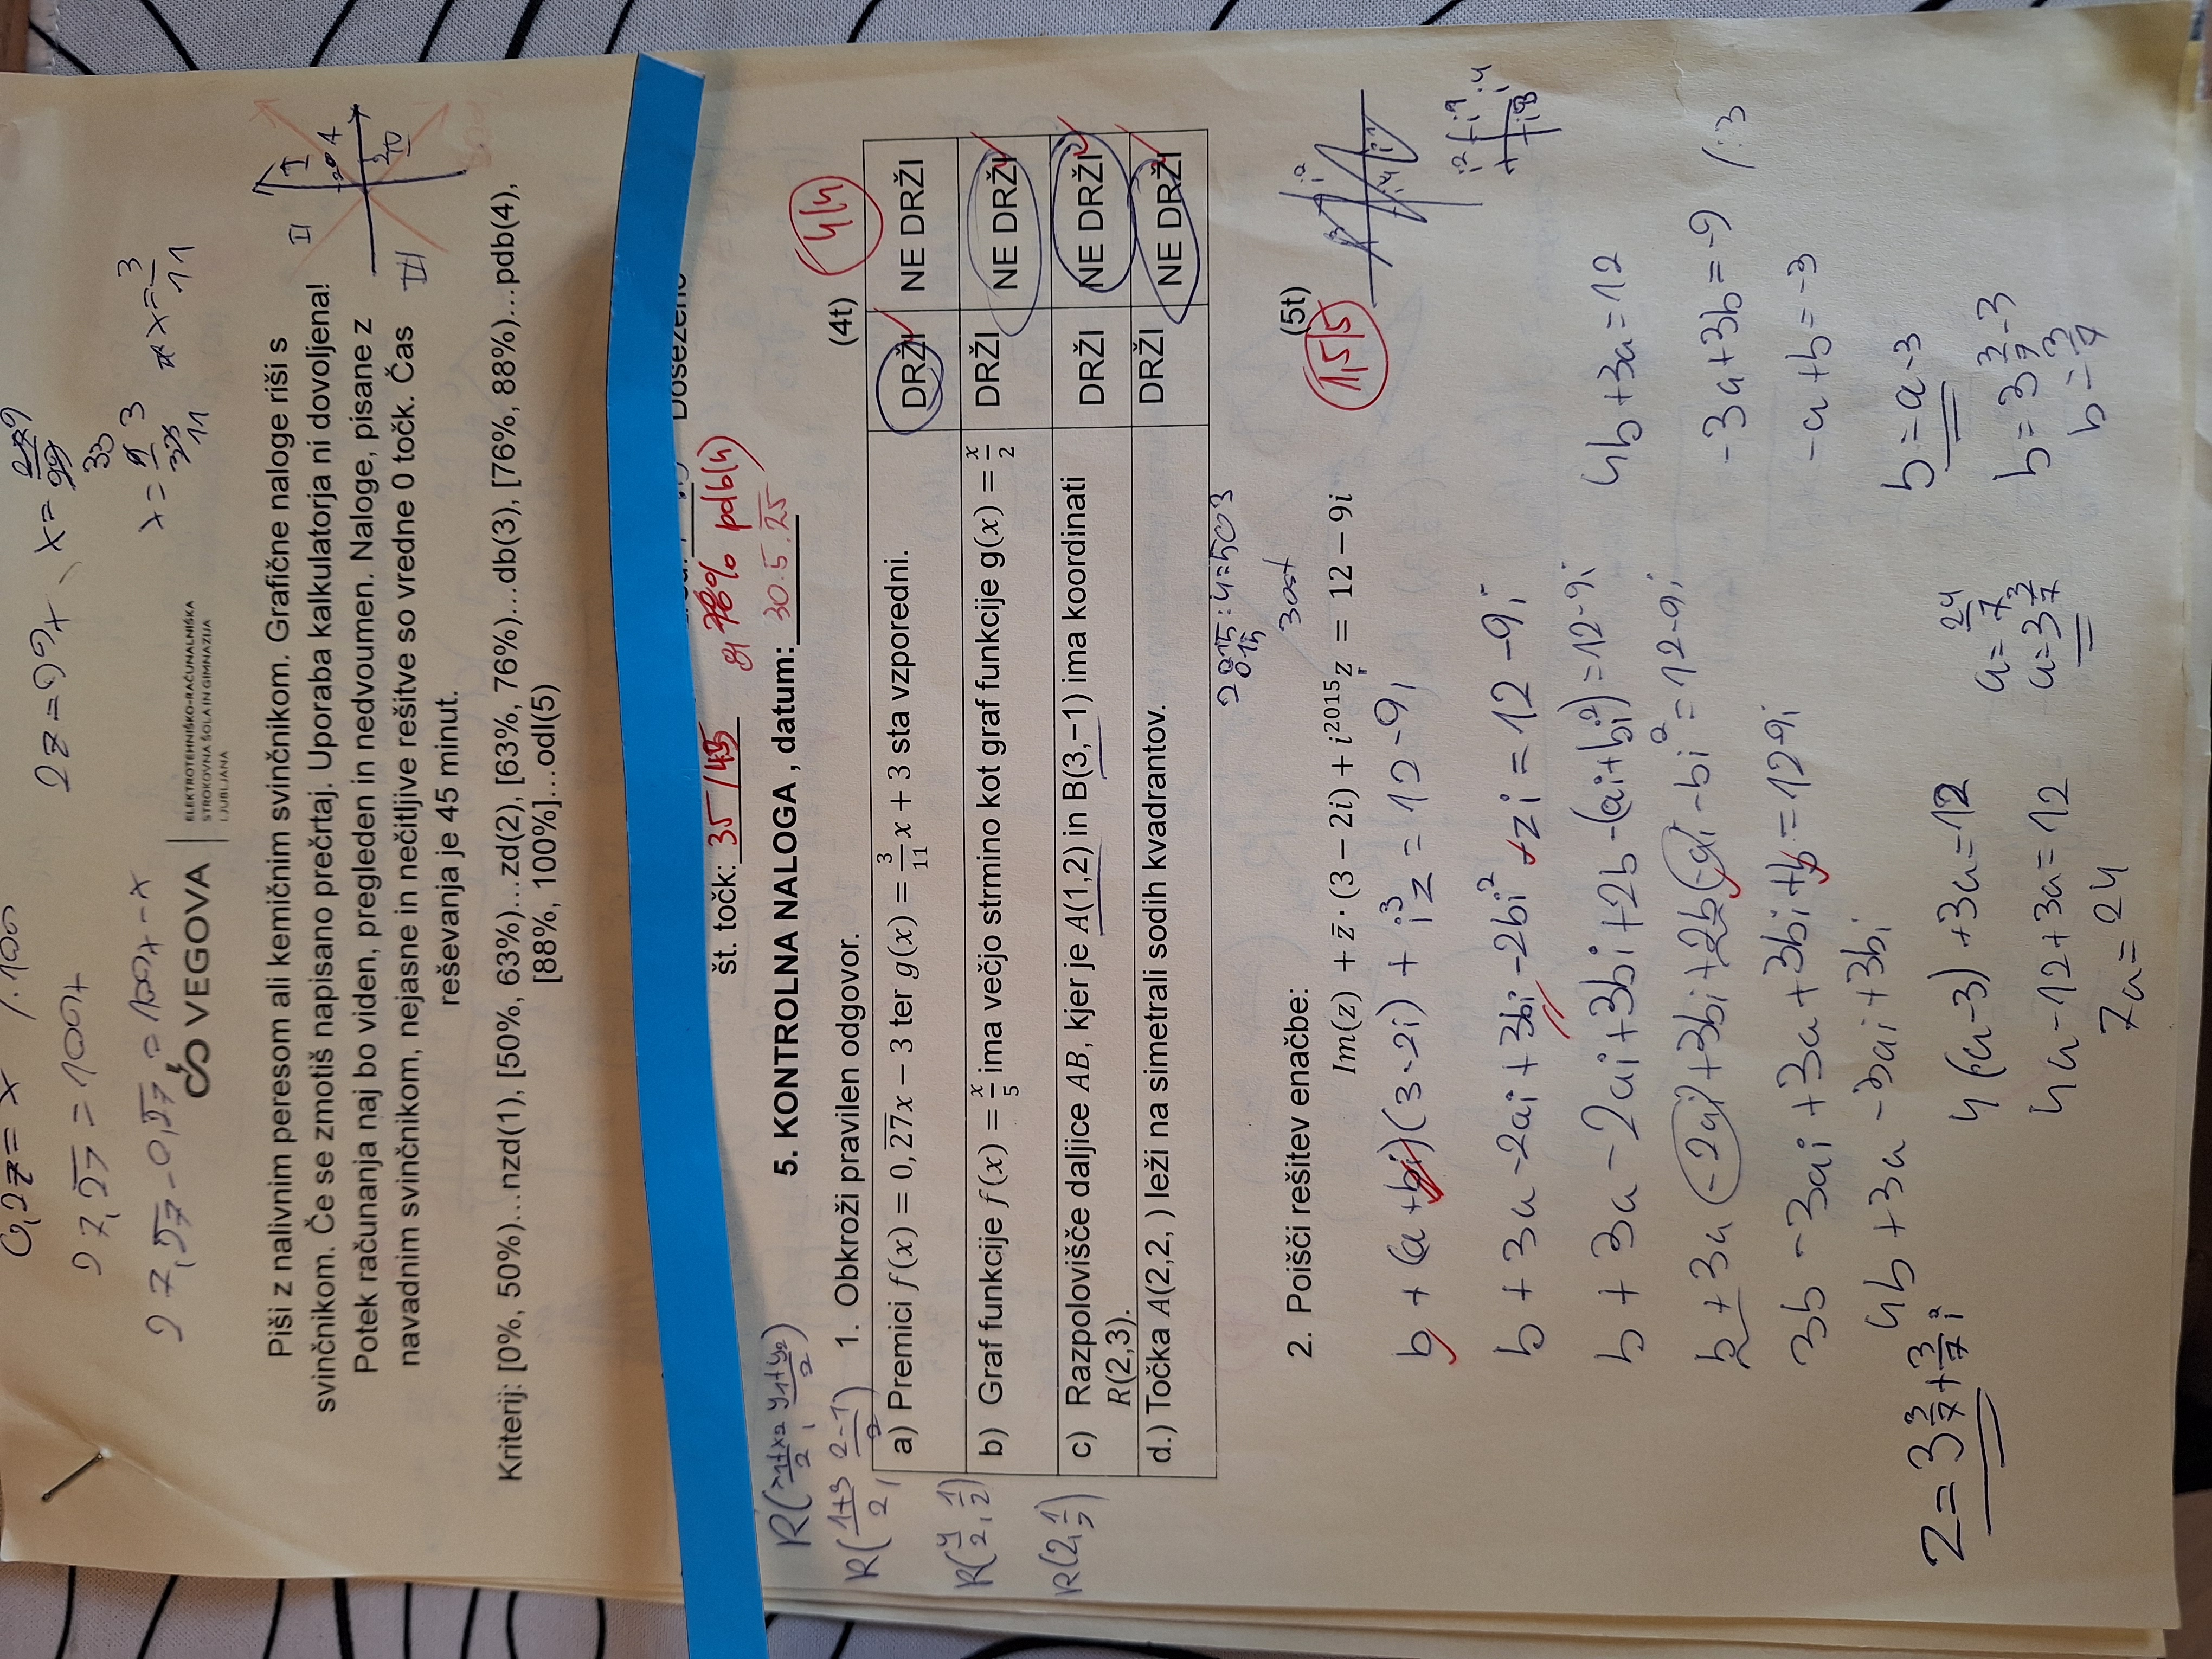 0,27 = x /·100
27,27 = 100x
27,27 - 0,27 = 100x - x
27 = 99x
x = 27 9
99
33
x = 9 3
33
11
x = 3/11
VEGOVA
ELEKTROTEHNIŠKO-RAČUNALNIŠKA
STROKOVNA ŠOLA IN GIMNAZIJA
LJUBLJANA
Piši z nalivnim peresom ali kemičnim svinčnikom. Grafične naloge riši s
svinčnikom. Če se zmotiš napisano prečrtaj. Uporaba kalkulatorja ni dovoljena!
Potek računanja naj bo viden, pregleden in nedvoumen. Naloge, pisane z
navadnim svinčnikom, nejasne in nečitljive rešitve so vredne 0 točk. Čas
reševanja je 45 minut.
II I
2 A
2
III
Kriterij: [0%, 50%)…nzd(1), [50%, 63%)…zd(2), [63%, 76%)…db(3), [76%, 88%)…pdb(4),
[88%, 100%]…odl(5)
Doseženo
št. točk: 35 / 45 % pdb(4)
5. KONTROLNA NALOGA , datum: 30.5.25
R(x1+x2/2, y1+y2/2)
R(1+3/2, 2-1/2)
R(4/2, 1/2)
R(2, 1/2)
1. Obkroži pravilen odgovor. (4t) 4/4
a) Premici f(x) = 0,27x − 3 ter g(x) = 3/11 x + 3 sta vzporedni. DRŽI NE DRŽI
b) Graf funkcije f(x) = x/5 ima večjo strmino kot graf funkcije g(x) = x/2 DRŽI NE DRŽI
c) Razpolovišče daljice AB, kjer je A(1,2) in B(3,−1) ima koordinati DRŽI NE DRŽI
R(2,3).
d.) Točka A(2,2, ) leži na simetrali sodih kvadrantov. DRŽI NE DRŽI
2015 : 4 = 503
015
3 ost
2. Poišči rešitev enačbe: (5t)
Im(z) + z̄ · (3 − 2i) + i²⁰¹⁵z = 12 − 9i
1,5/5
b + (a + bi)(3 - 2i) + i³z = 12 - 9i
b + 3a - 2ai + 3bi - 2bi² - zi = 12 - 9i
b + 3a - 2ai + 3bi + 2b - (ai + bi²) = 12 - 9i
b + 3a - 2ai + 3bi + 2b - ai - bi² = 12 - 9i
3b - 3ai + 3a + 3bi + b = 12 - 9i
4b + 3a - 3ai + 3bi
4b + 3a = 12
-3a + 3b = -9 /:3
-a + b = -3
b = a - 3
z = 3 3/7 + 3/7 i
4(a - 3) + 3a = 12
4a - 12 + 3a = 12
7a = 24
a = 24/7
a = 3 3/7
b = 3 3/7 - 3
b = 3/7